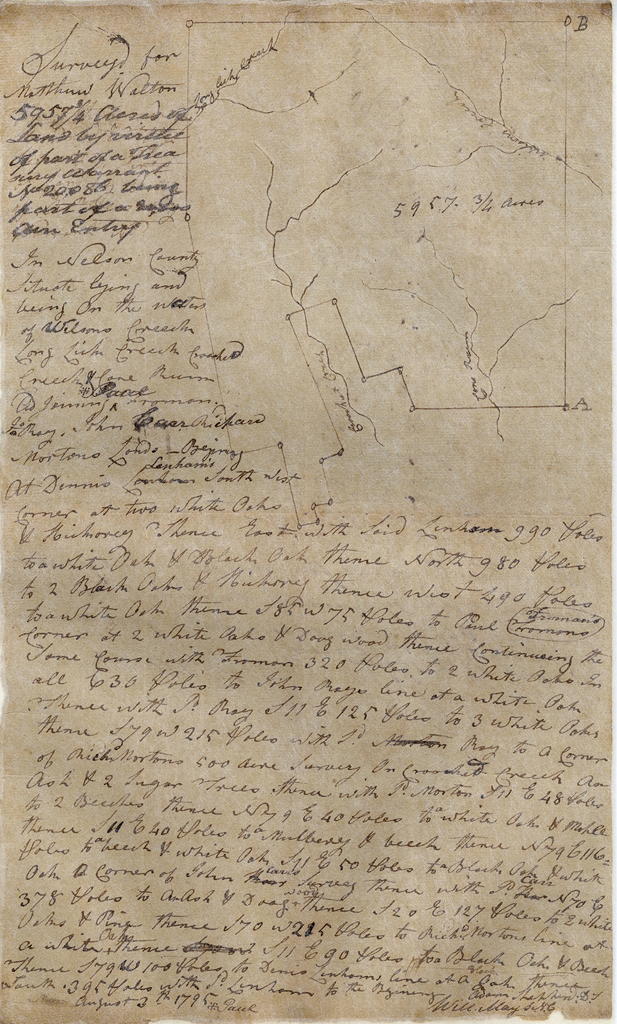 B
Survey'd for
Matthew Walton
5957¾ Acres of
Land by virtue
of part of a Trea
sury Warrant
No 20086 being
part of a
Entry
In Nelson County
situate lying and
being On the waters
of Wilsons Creech
Long Lick Creech Crooked
Creech & Cane Runn
*Paul
Adjoining Froman.
Jno Ray. John Carr Richard
Mortons Lands - Begining
Lenhams
At Dennis South west
corner at two white Oaks
& Hickorey Thence East with said Linham 990 Poles
to a white Oak & Black Oak thence North 980 Poles
to 2 Black Oaks & Hickorey thence west 490 Poles
to a white Oak thence S85W 75 Poles to Paul Fromans
Cromons
corner at 2 white Oaks & Doogwood thence Continueing the
Same Course with Froman 320 Poles to 2 white Oaks In
all 636 Poles to John Rays line at a white Oak
Thence with Sd Ray S11 E 125 Poles to 3 white Oaks
thence S79 W 215 Poles with Sd Morton Ray to a Corner
of Richd Mortons 500 acre Survey On Crooked Creech An
Ash & 2 Sugar Trees thence with Sd Morton S11 E 48 Poles
to 2 Beeches thence N79 E 40 Poles to a white Oak & Maple
thence S11 E 40 Poles to a Mulberey & beech thence N79 E 116
Poles to a beech & white Oak S11 E 50 Poles to a Black Oak & white
Oak A Corner of John Carrs Survey thence with Sd Carr N70 E
378 Poles to An Ash & Doogwood Thence S20 E 127 Poles to 2 white
Oaks & Pine thence S70 W 215 Poles to Richd Mortons line at
a white Oak Thence S11 E 90 Poles to a Black Oak & Beech
Thence S79 W 100 Poles to Denis Linhams line at a Oak Thence
South 395 Poles with Sd Linham to the Begining
August 3th 1795 *Paul
Adam Shepherd D.S
Will May S N C
Long Lick Creech
5957-¾ acres
Crooked Creech
Cane Runn
A